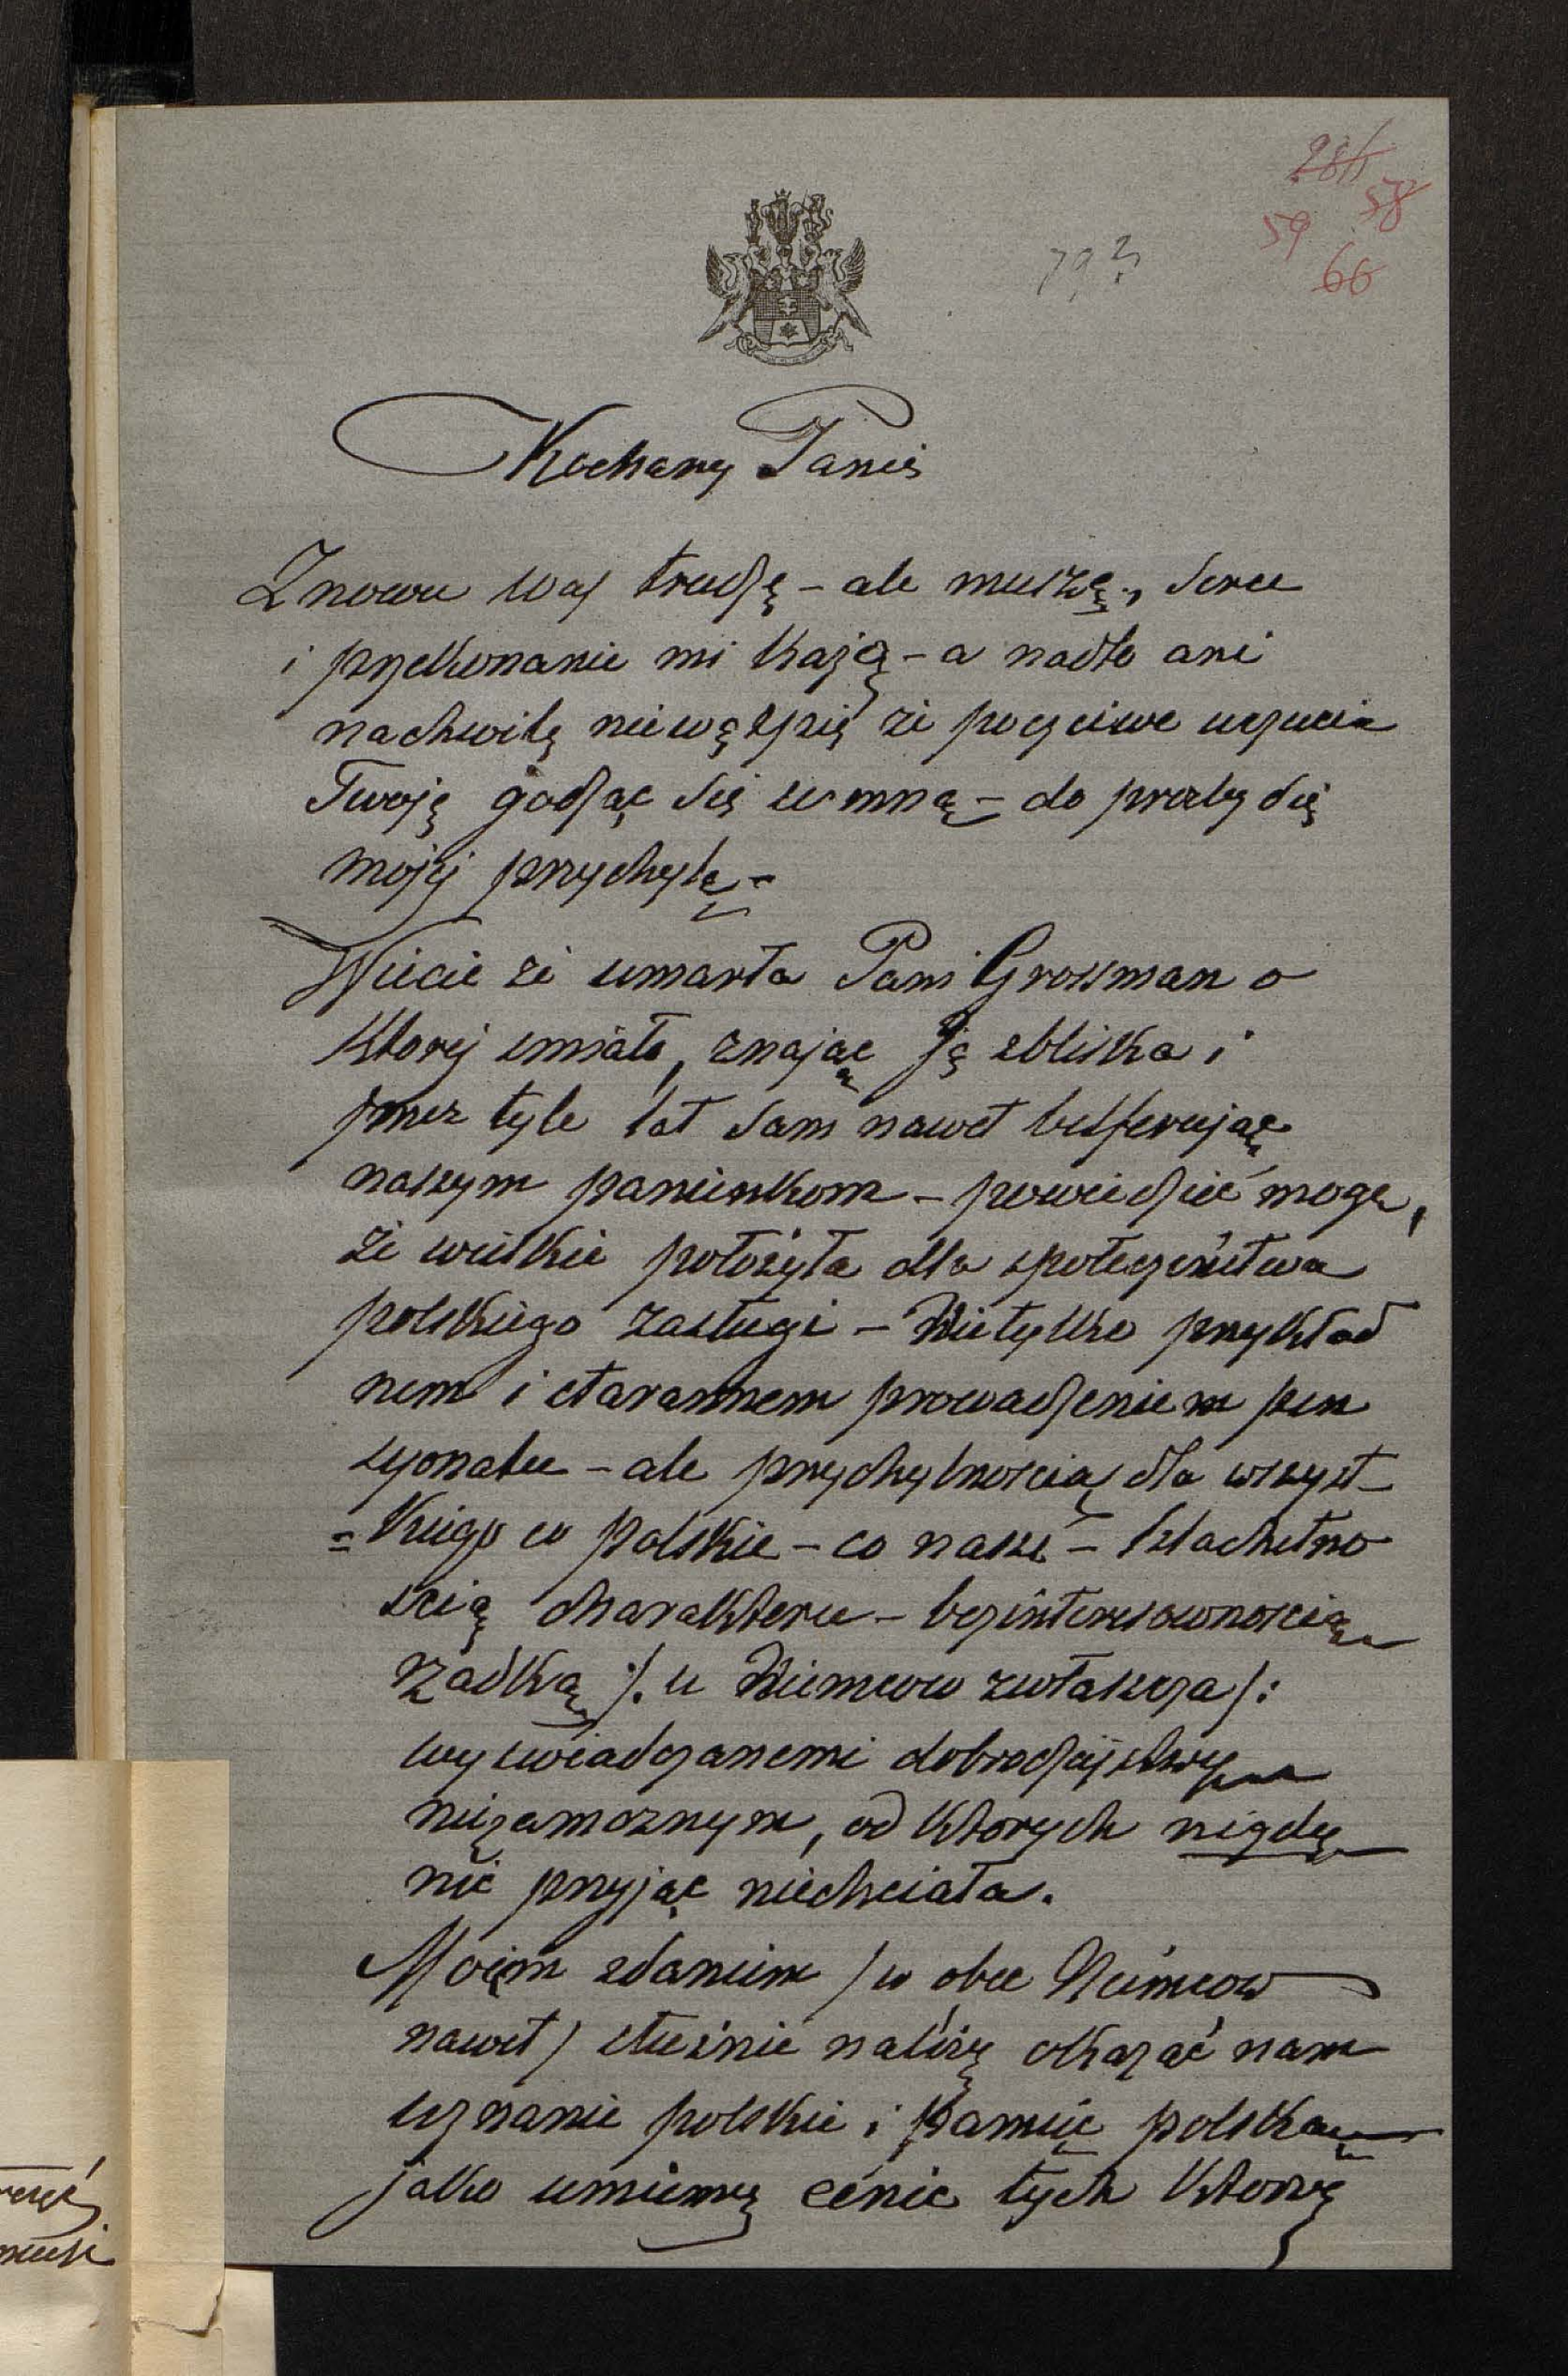 28/1
58
59
66
79 ?
Kochany Panie
Znowu Was trudzę – ale muszę, serce
i przekonanie mi każą – a nadto ani
nachwilę niewątpię że poczciwe uczucia
Twoję godząc się ze mną – do prożby się
mojej przychylę –
Wiecie że umarła Pani Grossman o
ktorej smiało, znając Ją zbliska i
przez tyle lat sam nawet
naszym panienkom – powiedzieć mogę,
że wielkie położyła dla społeczeństwa
polskiego zasługi – Nietylko przykład
nem i starannem prowadzeniem pen
syonatu – ale przychylnoscią dla wszyst–
=kiego co polskie – co nasze – szlachetno
scią charakteru – bezinteresownoscią
rzadką /: u Niemcow zwłaszcza /:
wyswiadczanemi dobrodziejstwy
niezamoznym, od ktorych nigdy
nic przyjąc niechciała.
Moiem zdaniem / w obec Niemcow
nawet / słusznie należy okazać nam
uznanie polskie i pamięc polską
jako umiemy cenic tych ktorzy